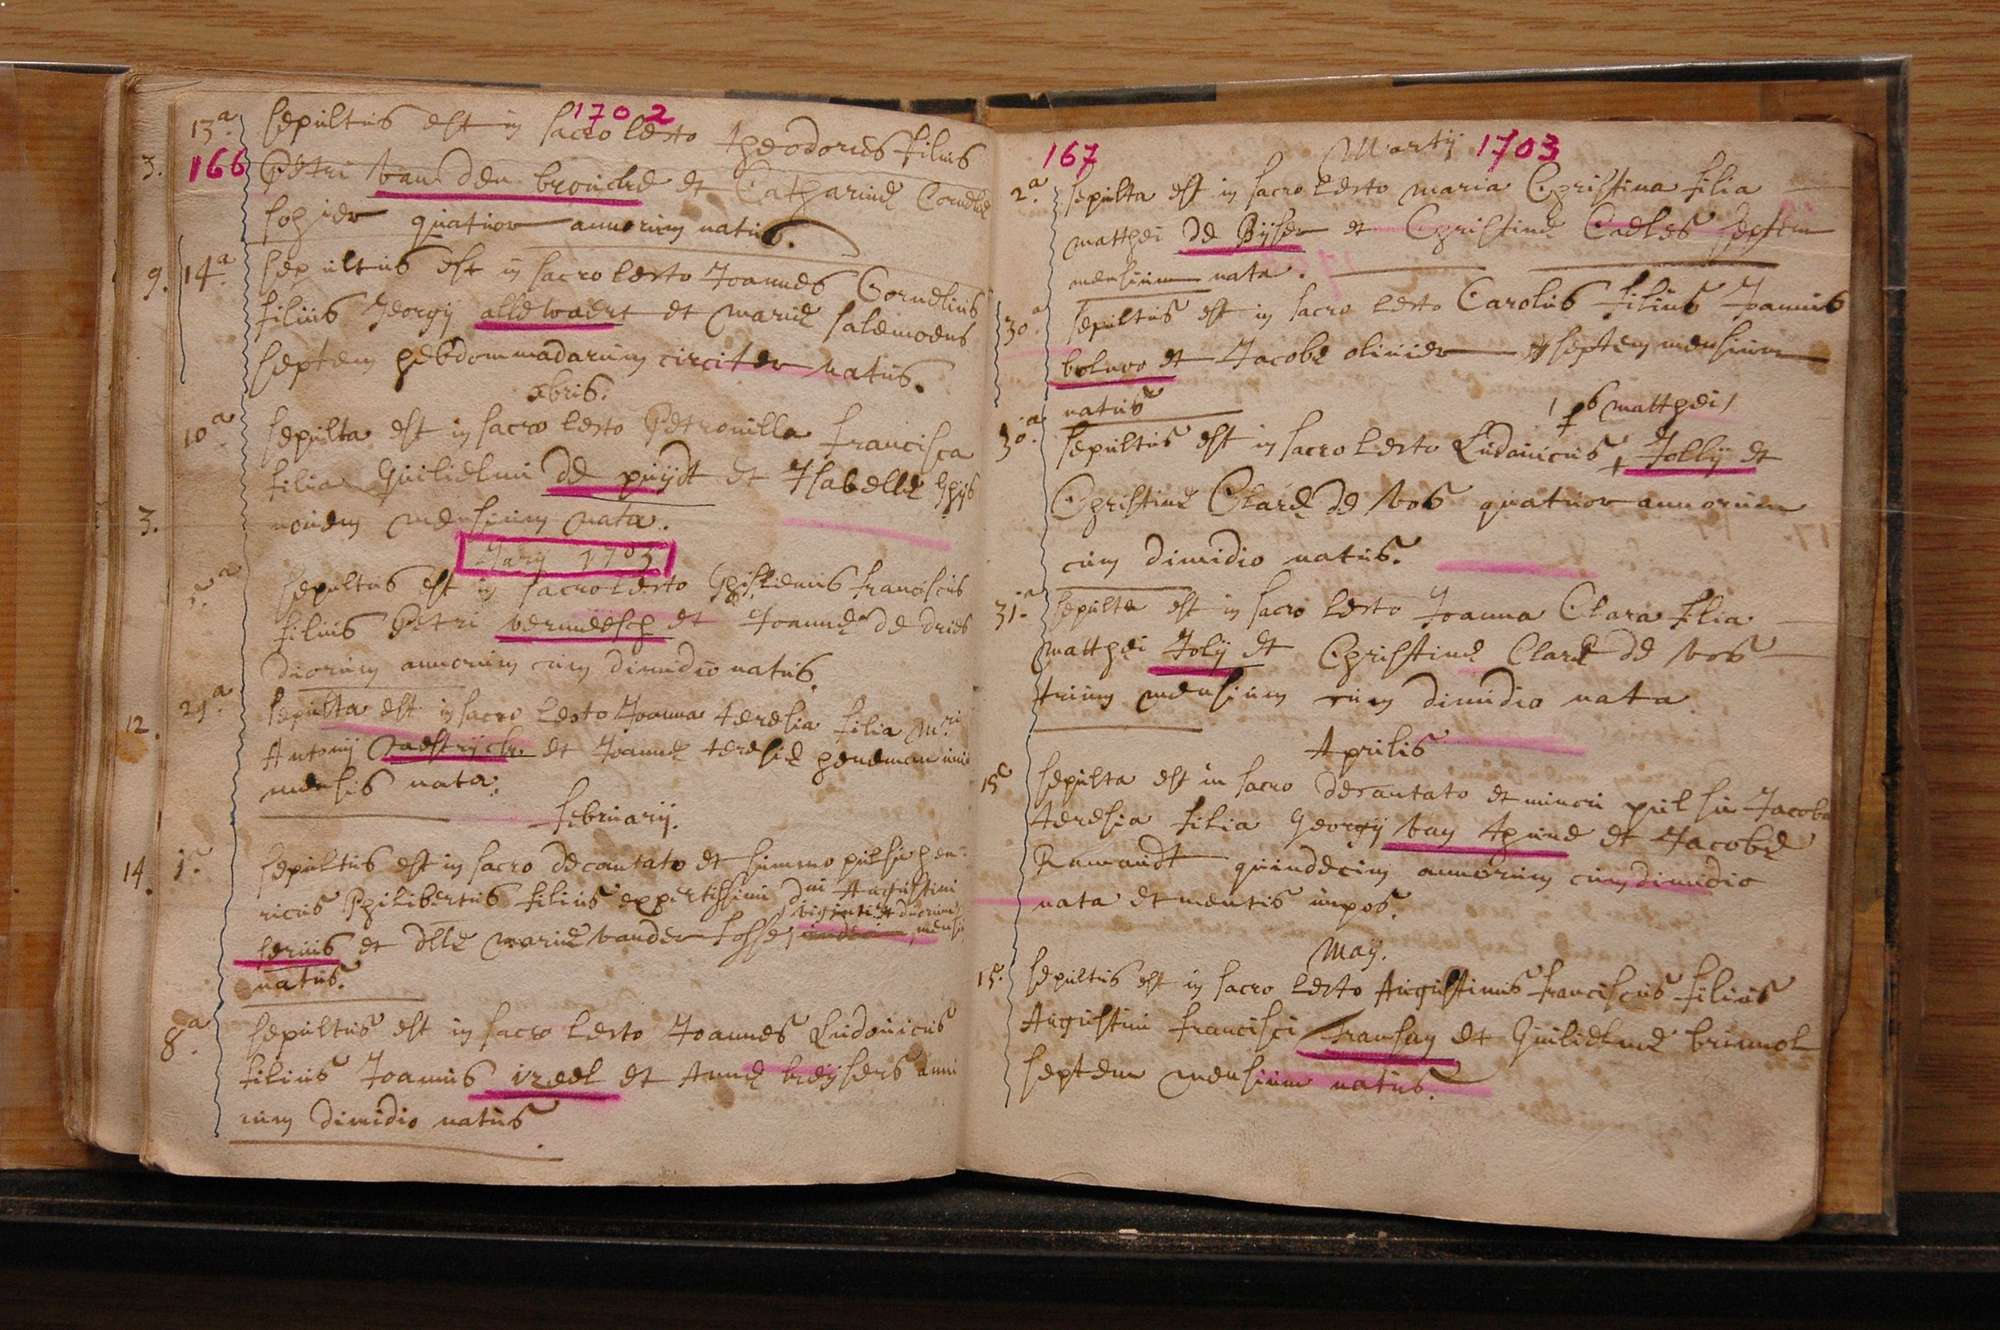 1702
13a. Sepultus est in sacro lecto theodorus filius
3. 166 Petri van den broucke et Catharinæ Corneliæ
sohier quatuor annorum natus.
9. 14a. sepultus est in sacro lecto Joannes Cornelius
filius Georgij allewaert et Mariæ salemoens
septem hebdommadarum circiter natus.
xbris.
10a. sepulta est in sacro lecto Petronilla francisca
filia Guilielmi de puydt et Isabellæ Ghijs
3. novem mensium nata.
Jary 1703
5.a sepultus est in sacro lecto Ghislenus franciscus
filius Petri vermeesch et Joannæ de dries
duorum annorum cum dimidio natus.
29.a sepulta est in sacro lecto Joanna teresia filia M.ri
12. Antonij et Joannæ teresiæ heneman unius
mensis nata.
februarij.
14. 1.a sepultus est in sacro decantato et summo pulsu hen-
ricus Philibertus filius expertissimi Dni Augustini
viginti et duorum
et dllæ mariæ vander fosse, mensium
natus.
8.a sepultus est in sacro lecto Joannes Ludovicus
filius Joannis et Annæ breijsers anni
cum dimidio natus.
167 Martij 1703
2.a sepulta est in sacro lecto maria Christina filia
matthei de Bijser et Christinæ Caeles septem
mensium nata.
30.a sepultus est in sacro lecto Carolus filius Joannis
et Jacobæ olivier septem mensium
natus
/ f.s matthei /
30.a sepultus est in sacro lecto Ludovicus + Jollij et
Christinæ Claræ de vos quatuor annorum
cum dimidio natus.
31.a sepulta est in sacro lecto Joanna Clara filia
matthei Jolij et Christinæ Claræ de vos
trium mensium cum dimidio nata
Aprilis
15.a sepulta est in sacro decantato et minori pulsu Jacoba
teresia filia Georgij et Jacobæ
Ramaudt quindecim annorum cum dimidio
nata et mentis impos.
May.
15.a sepultus est in sacro lecto Augustinus franciscus filius
Augustini francisci et Guilielmæ brunnol
septem mensium natus.